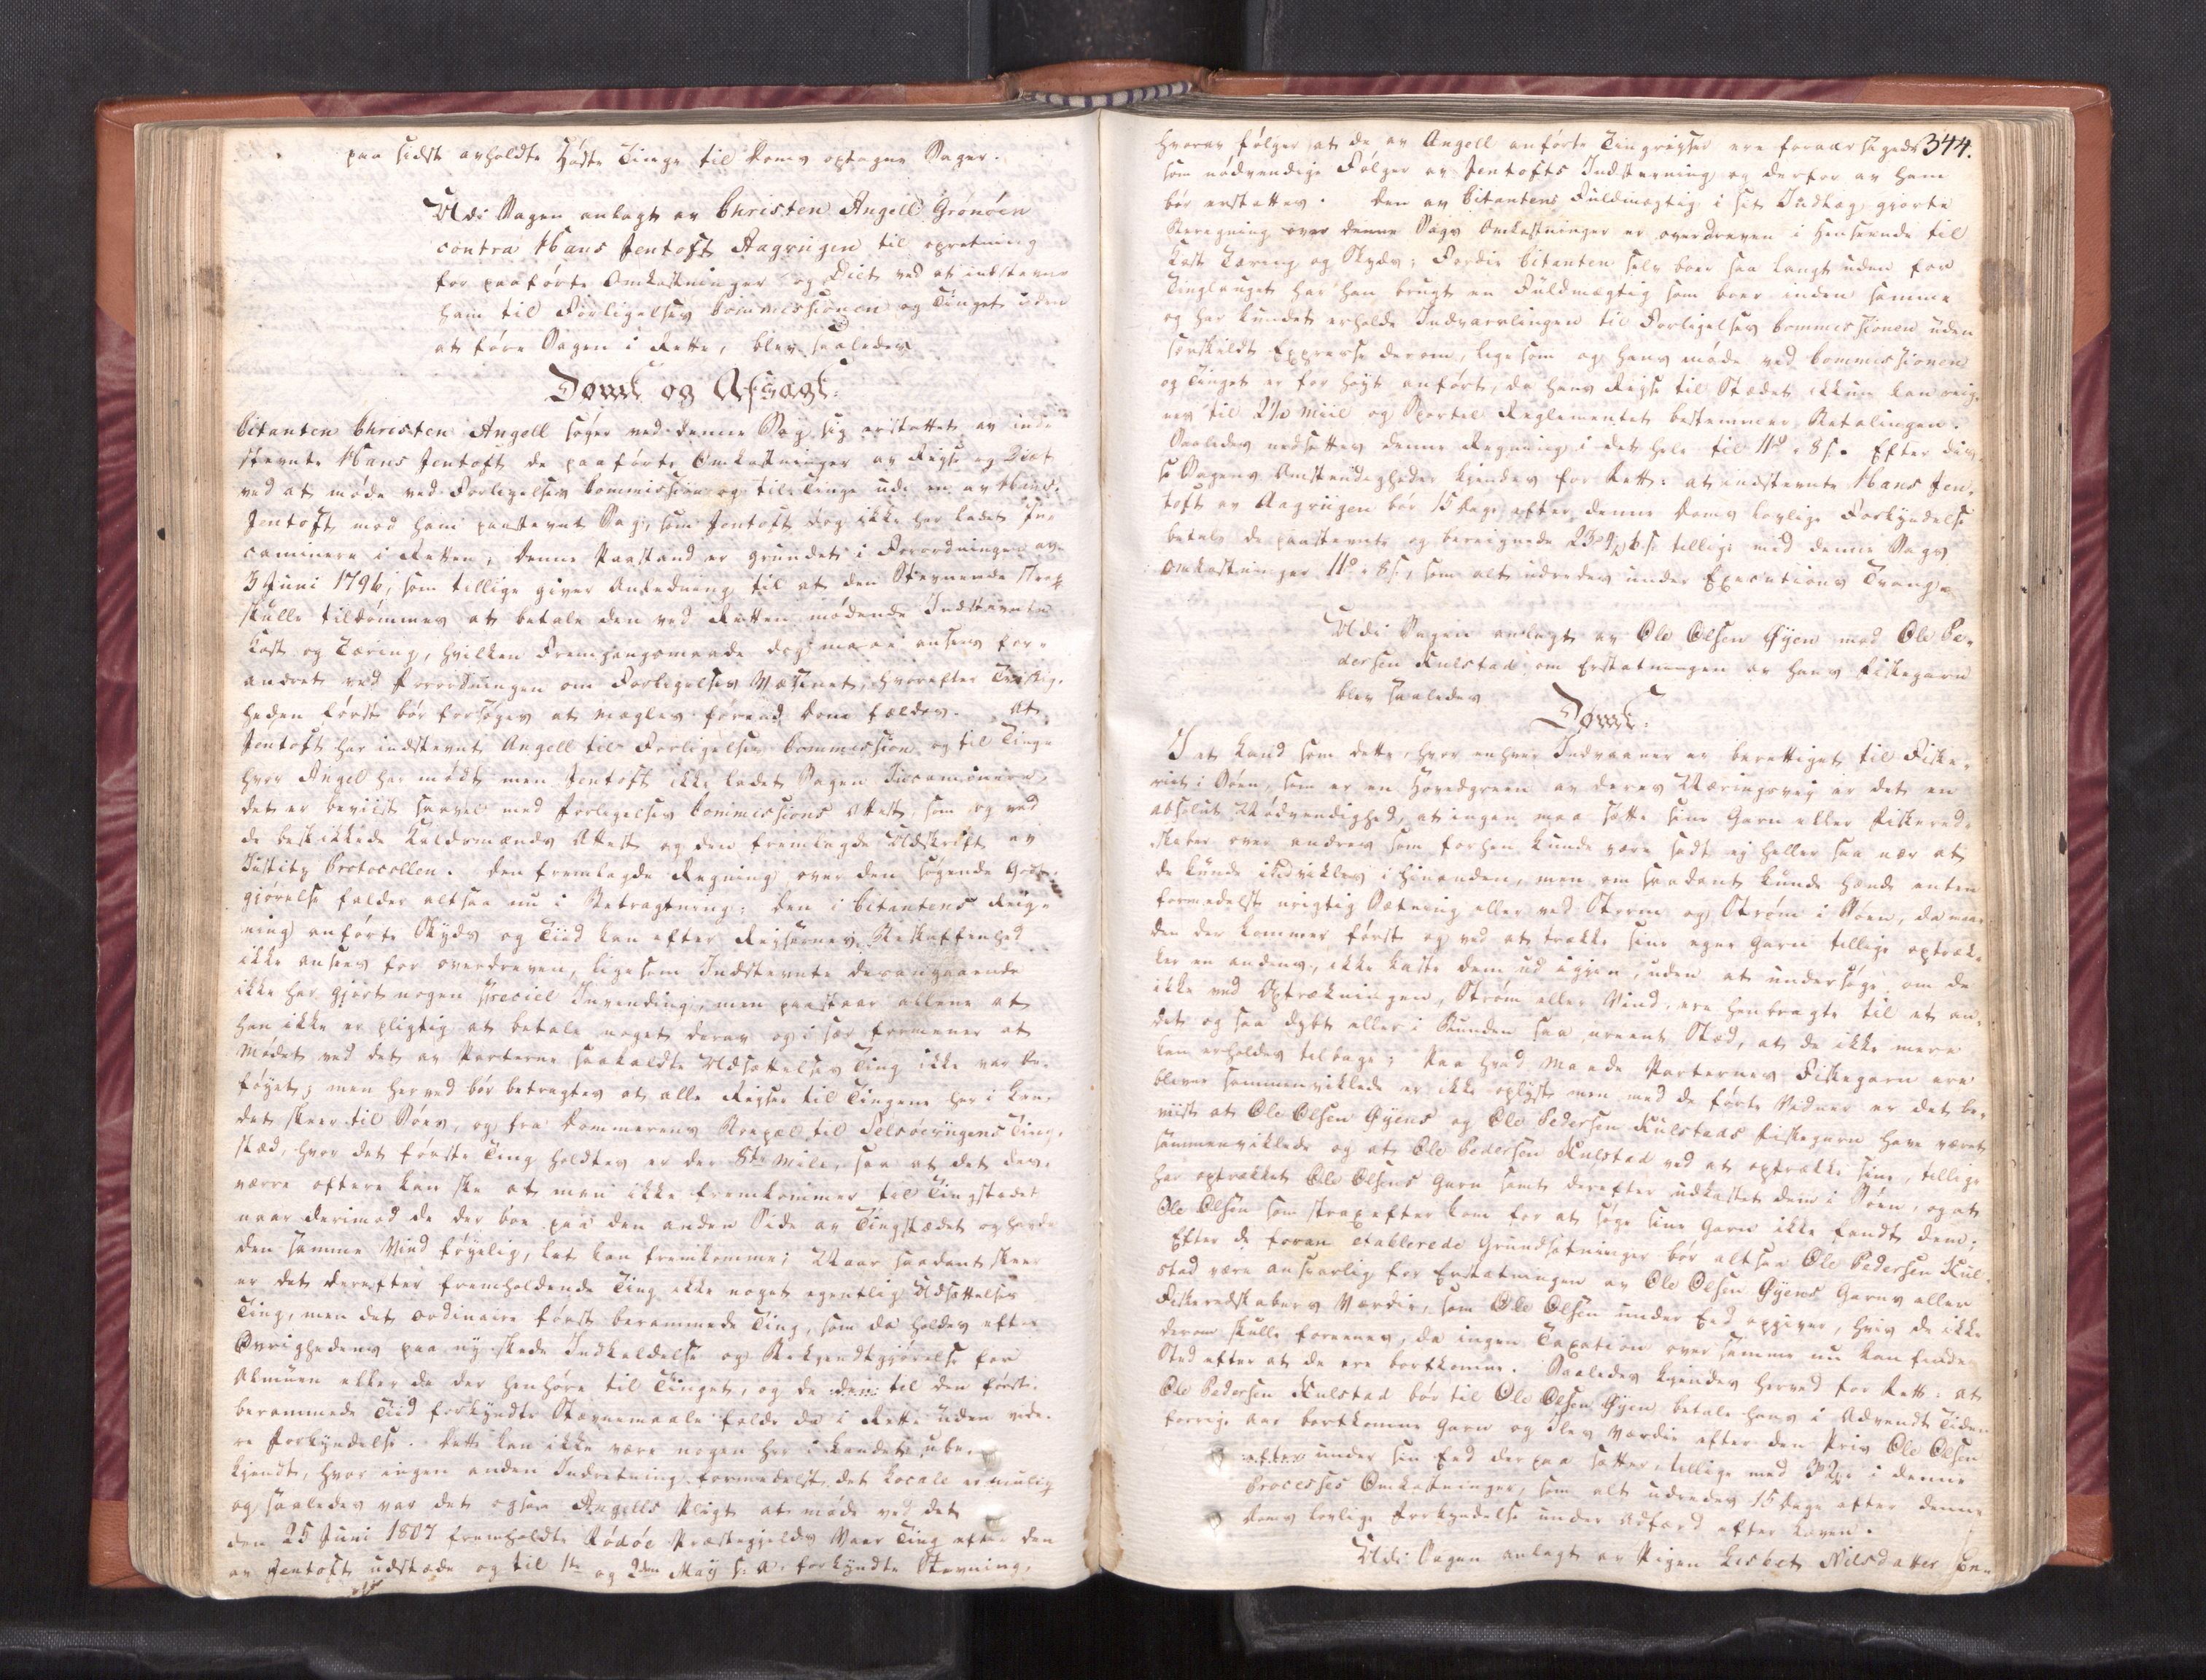 paa sidst avholdte Høste Tinge til Doms optagne Sager.
Udi Sagen anlagt av Christen Angell Grønøen
contra Hans Jentoft Aagvigen til opretning
for paaførte Omkostninger og Diæt ved at indstevne
ham til Forligelses Commissionen og Tinget uden
at føre Sagen i Rette, blev saaledes
Dømt og Afsagt:
Citanten Christen Angell søger ved denne Sag sig erstattet av ind-
stevnte Hans Jentoft de paaførte Omkostninger av Reyse og Diæt
ved at møde ved Forligelses Commission og til Tinge udi en av Hans
Jentoft mod ham paastevnt Sag, som Jentoft dog ikke har ladet In-
caminere i Retten, denne Paastand er grundet i Forordningen av
3 Juni 1796, som tillige giver Anledning til at den Stevnende strax
skulle tildømmes at betale den ved Retten mødende Indstevnte
Kost og Tæring, hvilken Fremgangsmaade dog maae ansees for-
andret ved Forordningen om Forligelses Væsenet, hvorefter Tvistig-
heden først bør forsøges at megles førend Dom fældes. At
Jentoft har indstevnt Angell til Forligelses Commission og til Tinge
hvor Angel har mødt men Jentoft ikke ladet Sagen Incaminere,
det er beviist saavel med Forligelses Commissions Attest, som og ved
de beskikkede Kaldsmænds Attest og den fremlagde Udskrift av
Justitz Protocollen. Den fremlagde Regning over den søgende Godt-
giørelse falder altsaa nu i Betragtning: den i Citantens Reig-
ning anførte Skyds og Tiid kan efter Reysernes Beskaffenhed
ikke ansees for overdreven, ligesom Indstevnte desangaaende
ikke har gjort nogen speciel Invending, men paastaar allene at
han ikke er pligtig at betale noget derav og i sær formener at
Mødet ved det av Parterne saakaldte Udsættelses Ting ikke var be-
føyet; men herved bør betragtes at alle Reyser til Tingene her i Lan-
det skeer til Søes, og fra Dommerens Bopæl til Selsøevigens Ting-
stæd, hvor det første Ting holdtes er der 8te Mile, saa at det des-
værre oftere kan ske at man ikke fremkommer til Tingstedet
naar derimod de der boe paa den anden Side av Tingstædet og havde
den samme Vind føyelig, let kan fremkomme; Naar saadant skeer
er det derefter fremholdende Ting ikke noget egentlig Udsættelses
Ting, men det ordinaire først berammede Ting, som da holdes efter
Øvrighedens paa ny skede Indkaldelse og Bekjendtgjørelse for
Almuen eller de der henhøre til Tinget, og de den til den først
berammede Tiid forkyndte Stævnemaale falde da i Rette uden vide-
re Forkyndelse. Dette kan ikke være nogen her i Landet ube-
kjendt, hvor ingen anden Indretning formedelst det Locale er mulig
og saaledes var det ogsaa Angells Pligt at møde ved det
den 25 Juni 1807 fremholdte Rødøe Præstegjelds Vaar Ting efter den
av Jentoft udstæde og til 1te og 2den May s: A: forkyndte Stevning,
344.
hvorav følger at de av Angell anførte Tingreyser ere foraarsagede
som nødvendige Følger av Jentofts Indstevning og derfor av ham
bør erstattes. Den av Citantens Fuldmægtig i sit Indlæg gjorte
Beregning over denne Sags Omkostninger er overdreven i Henseende til
Kost Tæring og Skyds; Fordi Citanten selv boer saa langt uden for
Tinglauget har han brugt en Fuldmægtig som boer inden samme
og har kundet erholde Indvarslingen til Forligelses Commissionen uden
særskildt Expresse derom, lige som og hans møde ved Commissionen
og Tinget er for høyt anført, da hans Reyse til Stædet ikkun kan reig-
nes til 2 1/2 Miil og Sportel Reglementet bestemmer Betalingen.
Saaledes nedsættes denne Regning i det hele til 11d. 8s. Efter dis-
se Sagens Omstændigheder kjendes for Rett: at indstevnte Hans Jen-
toft av Aagviigen bør 15 Dage efter denne Doms lovlige Forkyndelse
betale de paastevnte og bereignede 23 d 4 6 s tillige med denne Sags
Omkostninger 11d. 8s, som alt udredes under Executions Tvang.
Udi Sagen anlagt av Ole Olsen Øyen mod Ole Pe-
dersen Kulstad om Erstatningen av hans Fiskegarn
blev saaledes
Dømt:
I et Land som dette, hvor enhver Indvaaner er berettiget til Fiske-
riet i Søen, som er en Hovedgreen av deres Næringsvey er det en
absolut Nødvendighed, at ingen maa sætte sine Garn eller Fiskered-
skaber over andres som forhen kunde være sadt ej heller saa nær at
de kunde indvikles i hinanden, men om saadant kunde hænde enten
formedelst urigtig Sætning eller ved Storm og Strøm i Søen, da maae
den der kommer først og ved at trække sine egne Garn tillige optræk-
ker en andens, ikke kaste dem ud igjen, uden at undersøge, om de
ikke ved Optrækningen, Strøm eller Vind, ere henbragte til at an-
det og saa dybt eller i Bunden saa ureent Stæd, at de ikke mere
kan erholdes tilbage; Paa hvad Maade Parternes Fiskegarn ere
blevne sammenviklede er ikke oplyst men med de førte Vidner er det be-
viist at Ole Olsen Øyens og Ole Pedersen Kulstads Fiskegarn have været
sammenviklede og at Ole Pedersen Kulstad ved at optrække sine, tillige
har optrækket Ole Olsens Garn samt derefter udkastet dem i Søen, og at
Ole Olsen som strax efter kom for at søge sine Garn ikke fandt dem;
Efter de foran etablerede Grundsætninger bør altsaa Ole Pedersen Kul-
stad være ansvarlig for Erstatningen av Ole Olsen Øyens Garns eller
Fiskeredskabers Værdie, som Ole Olsen under Eed opgiver, hvis de ikke
derom skulle foreenes, da ingen Taxation over samme nu kan finde
Sted efter at de ere bortkomne. Saaledes kjendes herved for Rett: at
Ole Pedersen Kulstad bør til Ole Olsen Øyen betale hans i Advendt Tiden
forrige Aar bortkomne Garn og Iles Værdie efter den Priis Ole Olsen
under sin Eed derpaa sætter, tillige med i denne
Processes Omkostninger, som alt udredes 15 Dage efter denne
Doms lovlige Forkyndelse under Adfærd efter Loven.
Udi Sagen anlagt av Pigen Lisbet Nilsdatter